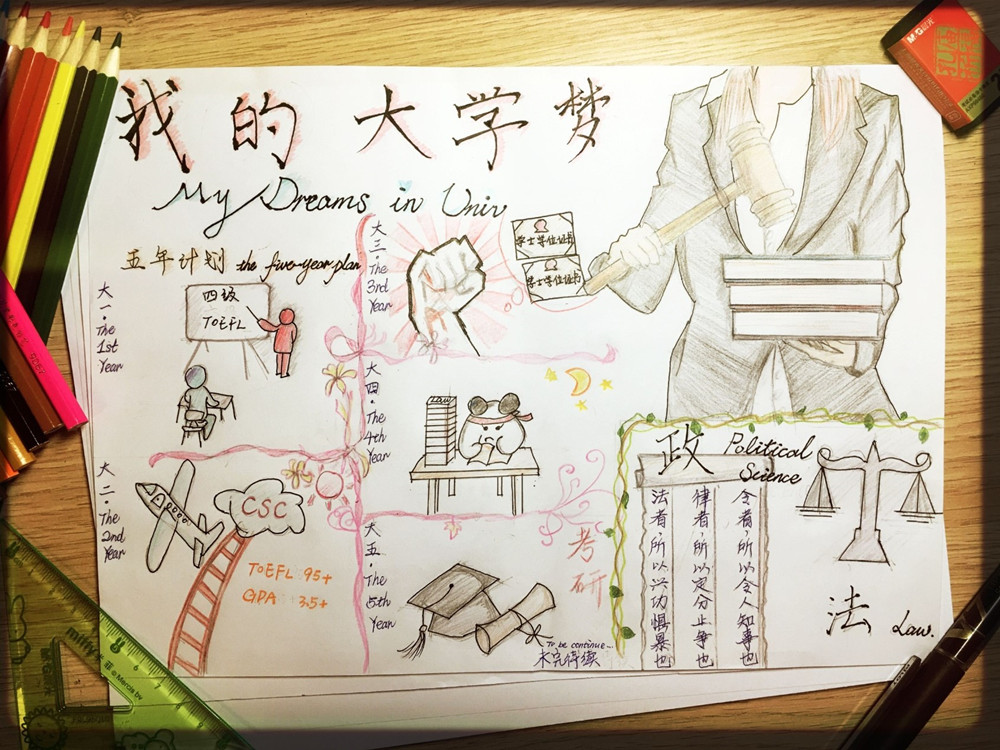 我的大学梦
My Dreams in Univ
五年计划 the five-year plan
大一·The 1st Year
四级
TOEFL
大二·The 2nd Year
CSC
TOEFL 95+
GPA 3.5+
大三·The 3rd Year
学士学位证书
学士学位证书
大四·The 4th Year
LAW
考研
大五·The 5th Year
To be continue...
未完待续
政 Political Science
法者,所以兴功惧暴也
律者,所以定分止争也
令者,所以令人知事也
法 Law.
M&G
miffy